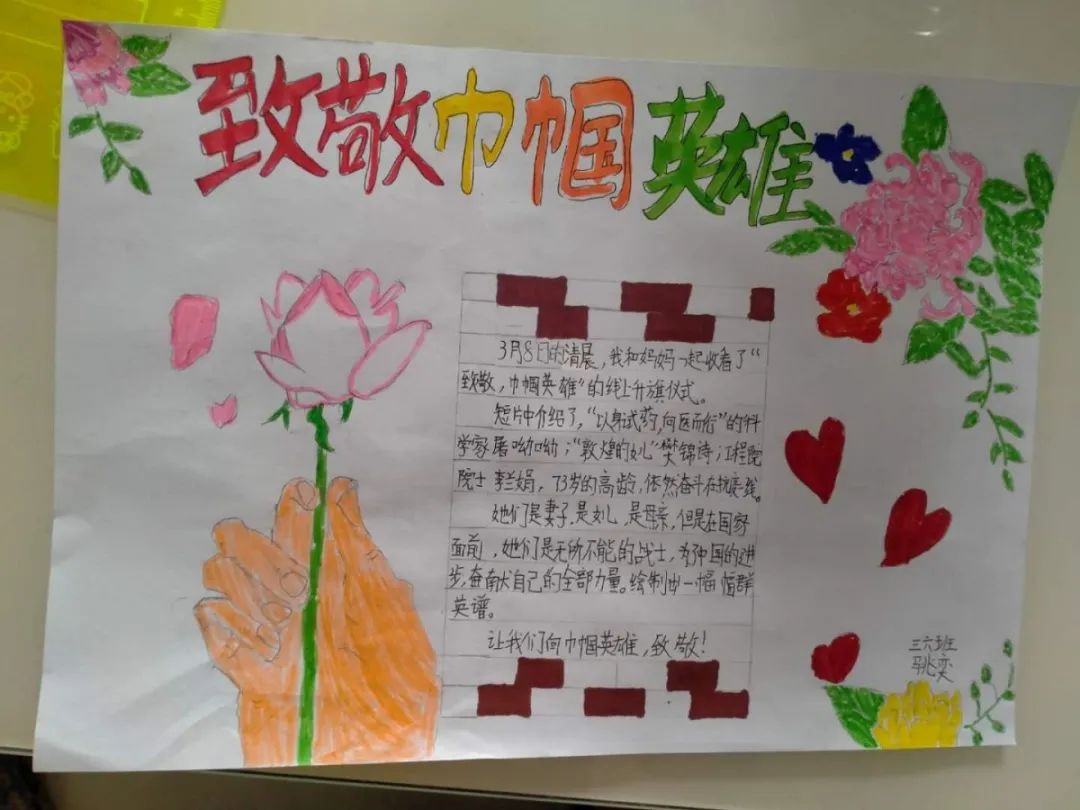 致敬巾帼英雄
3月8日的清晨，我和妈妈一起收看了“
致敬，巾帼英雄”的线上升旗仪式。
短片中介绍了，“以身试药，向医而行”的科
学家屠呦呦；“敦煌的女儿”樊锦诗；工程院
院士李兰娟，73岁的高龄，依然奋斗在抗疫一线。
她们是妻子，是女儿，是母亲，但是在国家
面前，她们是无所不能的战士，为中国的进
步，奋献自己的全部力量。绘制出一幅幅群
英谱。
让我们向巾帼英雄，致敬！
三六班
马兆奕